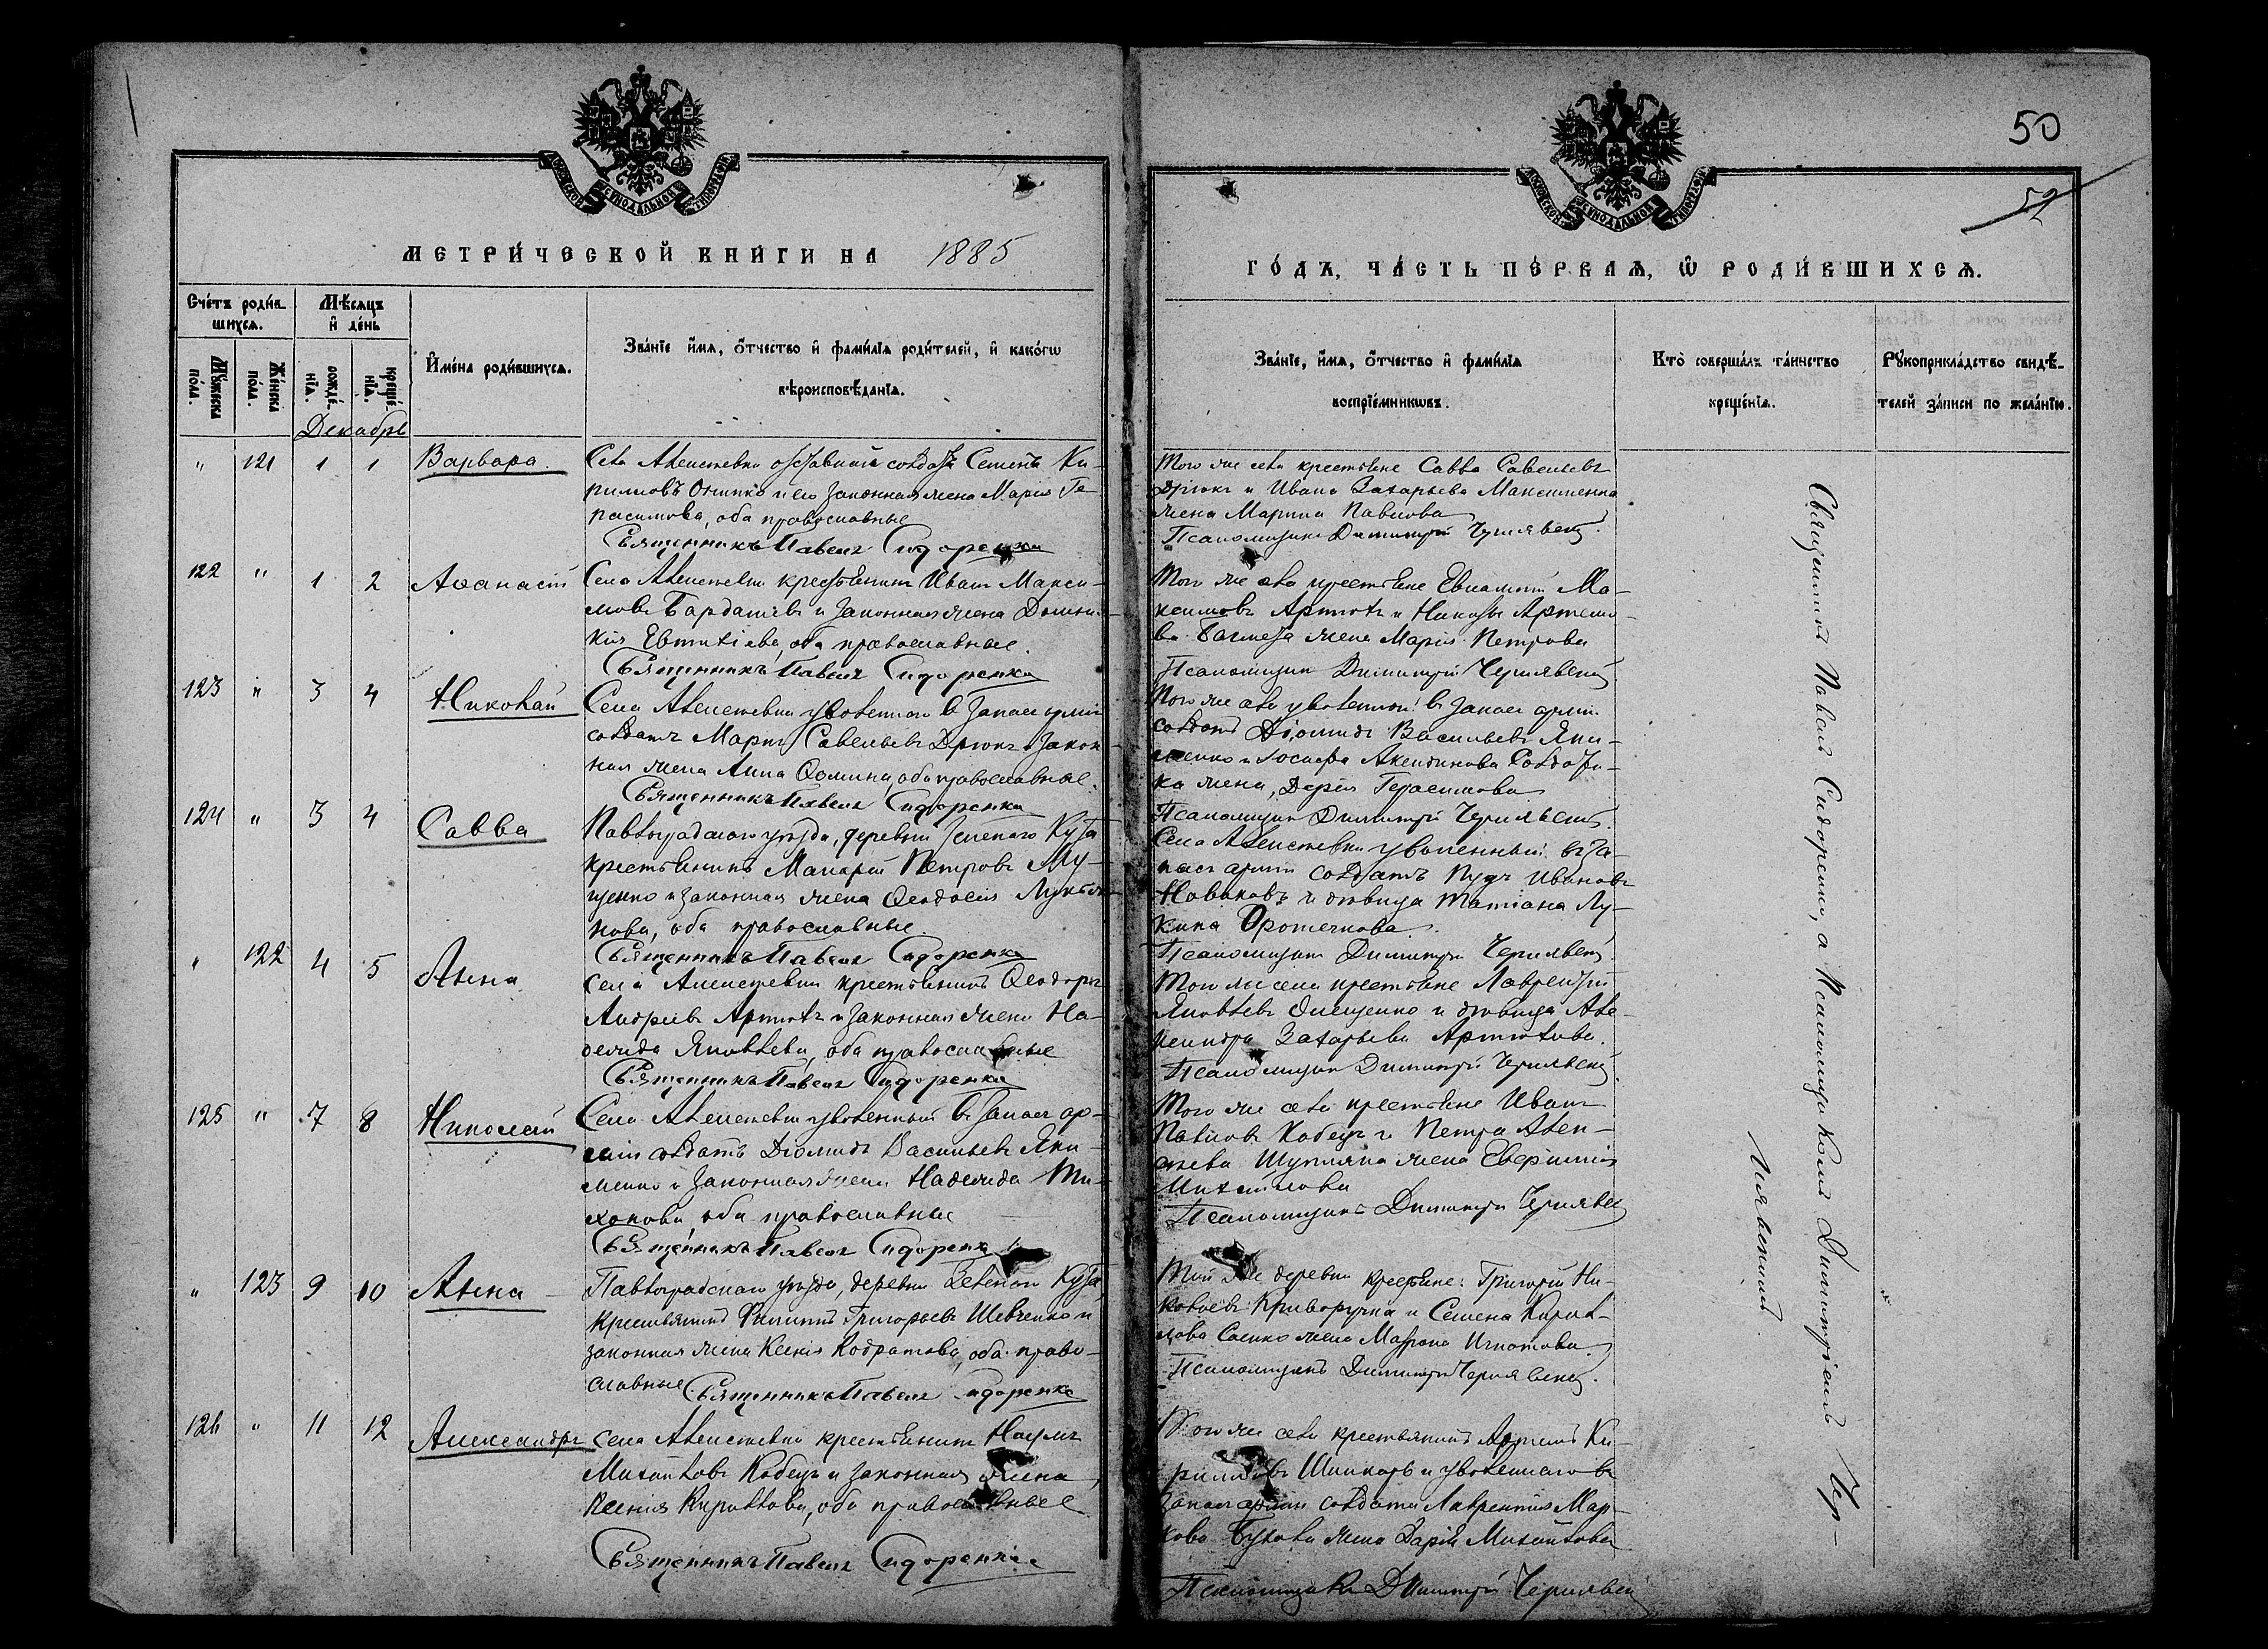 50
52
МОСКОВСКОЙ СѴНОДАЛЬНОЙ ТИПОГРАФІИ
МОСКОВСКОЙ СѴНОДАЛЬНОЙ ТИПОГРАФІИ
МЕТРИ́ЧЕСКОЙ КНИ́ГИ НА 1885
ГО́ДЪ, ЧА́СТЬ ПЕ́РВАѦ, Ѿ РОДИ́ВШИХСѦ.
Сче́тъ роди́в-
шихсѧ.
Мꙋ́жеска по́ла.
Же́нска по́ла.
Мѣ́сѧцъ и҆ де́нь
рожде́-нїѧ.
креще́-нїѧ.
Декабрь
И҆мена̀ роди́вшихсѧ.
Зва́нїе и҆́мѧ, ѻ҆́тчество и҆ фамилїѧ роди́телей, и҆ како́гѡ
вѣроисповѣ́данїѧ.
Зва́нїе, и҆́мѧ, ѻ҆́тчество и҆ фамилїѧ
воспрїе́мникѡвъ.
Кто̀ соверша́лъ та́инство
креще́нїѧ.
Рꙋкоприкла́дство свидѣ́-
телей за́писи по жела́нїю.
" 121 1 1 Варвара
Села Алексеевки отставной солдатъ Семенъ Ки-
рилловъ Онипко и его законная жена Марія Ге-
расимова, оба православные
Священникъ Павелъ Сидоренко
Того же села крестьяне Савва Савельевъ
Дрюкъ и Ивана Захарьева Максименка
жена Марина Павлова
Псаломщикъ Димитрій Чернявскій
122 " 1 2 Аѳанасій
Села Алексеевки крестьянинъ Иванъ Макси-
мовъ и законная жена Домни-
кія Евтихіева, оба православные.
Священникъ Павелъ Сидоренко
Того же села крестьяне Ма-
ксимовъ Артюхъ и Никиты Артемо-
ва жена Марія Петрова
Псаломщикъ Димитрій Чернявскій
123 " 3 4 Николай
Села Алексеевки уволенный въ запасъ арміи
солдатъ Савельевъ Дрюкъ и закон-
ная жена Анна Ѳомина, оба православные.
Священникъ Павелъ Сидоренко
Того же села уволенный въ запасъ арміи
солдатъ Діомидъ Васильевъ Яки-
менко и Іосифа Акиндинова
жена, Дарія Герасимова
Псаломщикъ Димитрій Чернявскій.
124 " 3 4 Савва
Павлоградскаго уѣзда, деревни Зеленаго Кута
крестьянинъ Макарій Петровъ
и законная жена Ѳеодосія Лукья-
нова, оба православные.
Священникъ Павелъ Сидоренко
Села Алексеевки уволенный въ за-
пасъ арміи солдатъ Иванъ
Новиковъ и дѣвица Татіана Лу-
кина
Псаломщикъ Димитрій Чернявскій.
" 122 4 5 Анна
Села Алексеевки крестьянинъ Ѳеодоръ
Андреевъ Артюхъ и законная жена На-
дежда Яковлева, оба православные
Священникъ Павелъ Сидоренко
Того же села крестьяне Лаврентій
Яковлевъ Онищенко и дѣвица Але-
ксандра Захарьева Артюхова.
Псаломщикъ Димитрій Чернявскій.
125 " 7 8 Николай
Села Алексеевки уволенный въ запасъ ар-
міи солдатъ Діомидъ Васильевъ Яки-
менко и законная жена Надежда Ти-
хонова, оба православные
Священникъ Павелъ Сидоренко
Того же села крестьяне Иванъ
Павловъ Кобецъ и Петра Алек-
сеева жена
Михайлова
Псаломщикъ Димитрій Чернявск
" 123 9 10 Анна
Павлоградскаго уѣзда, деревни Зеленаго Кута,
крестьянинъ Филиппъ Григорьевъ Шевченко и
законная жена Ксенія Кодратова, оба право-
славные. Священникъ Павелъ Сидоренко
Той же деревни крестьяне: Григорій Ни-
колаевъ Криворучка и Семена Кирил-
лова жена Матрона Игнатова.
Псаломщикъ Димитрій Чернявскій.
126 " 11 12 Александръ
Села Алексеевки крестьянинъ Наумъ
Михайловъ Кобецъ и законная жена
Ксенія Кириллова, оба православные
Священникъ Павелъ Сидоренко
Того же села крестьянинъ Артемъ Ки-
рилловъ и уволеннаго въ
запасъ арміи солдата Лаврентія Мар-
кова жена Дарія Михайлова
Псаломщикъ Димитрій Чернявскій
Священникъ Павелъ Сидоренко, а Псаломщикомъ Димитріемъ Чер-
нявскимъ